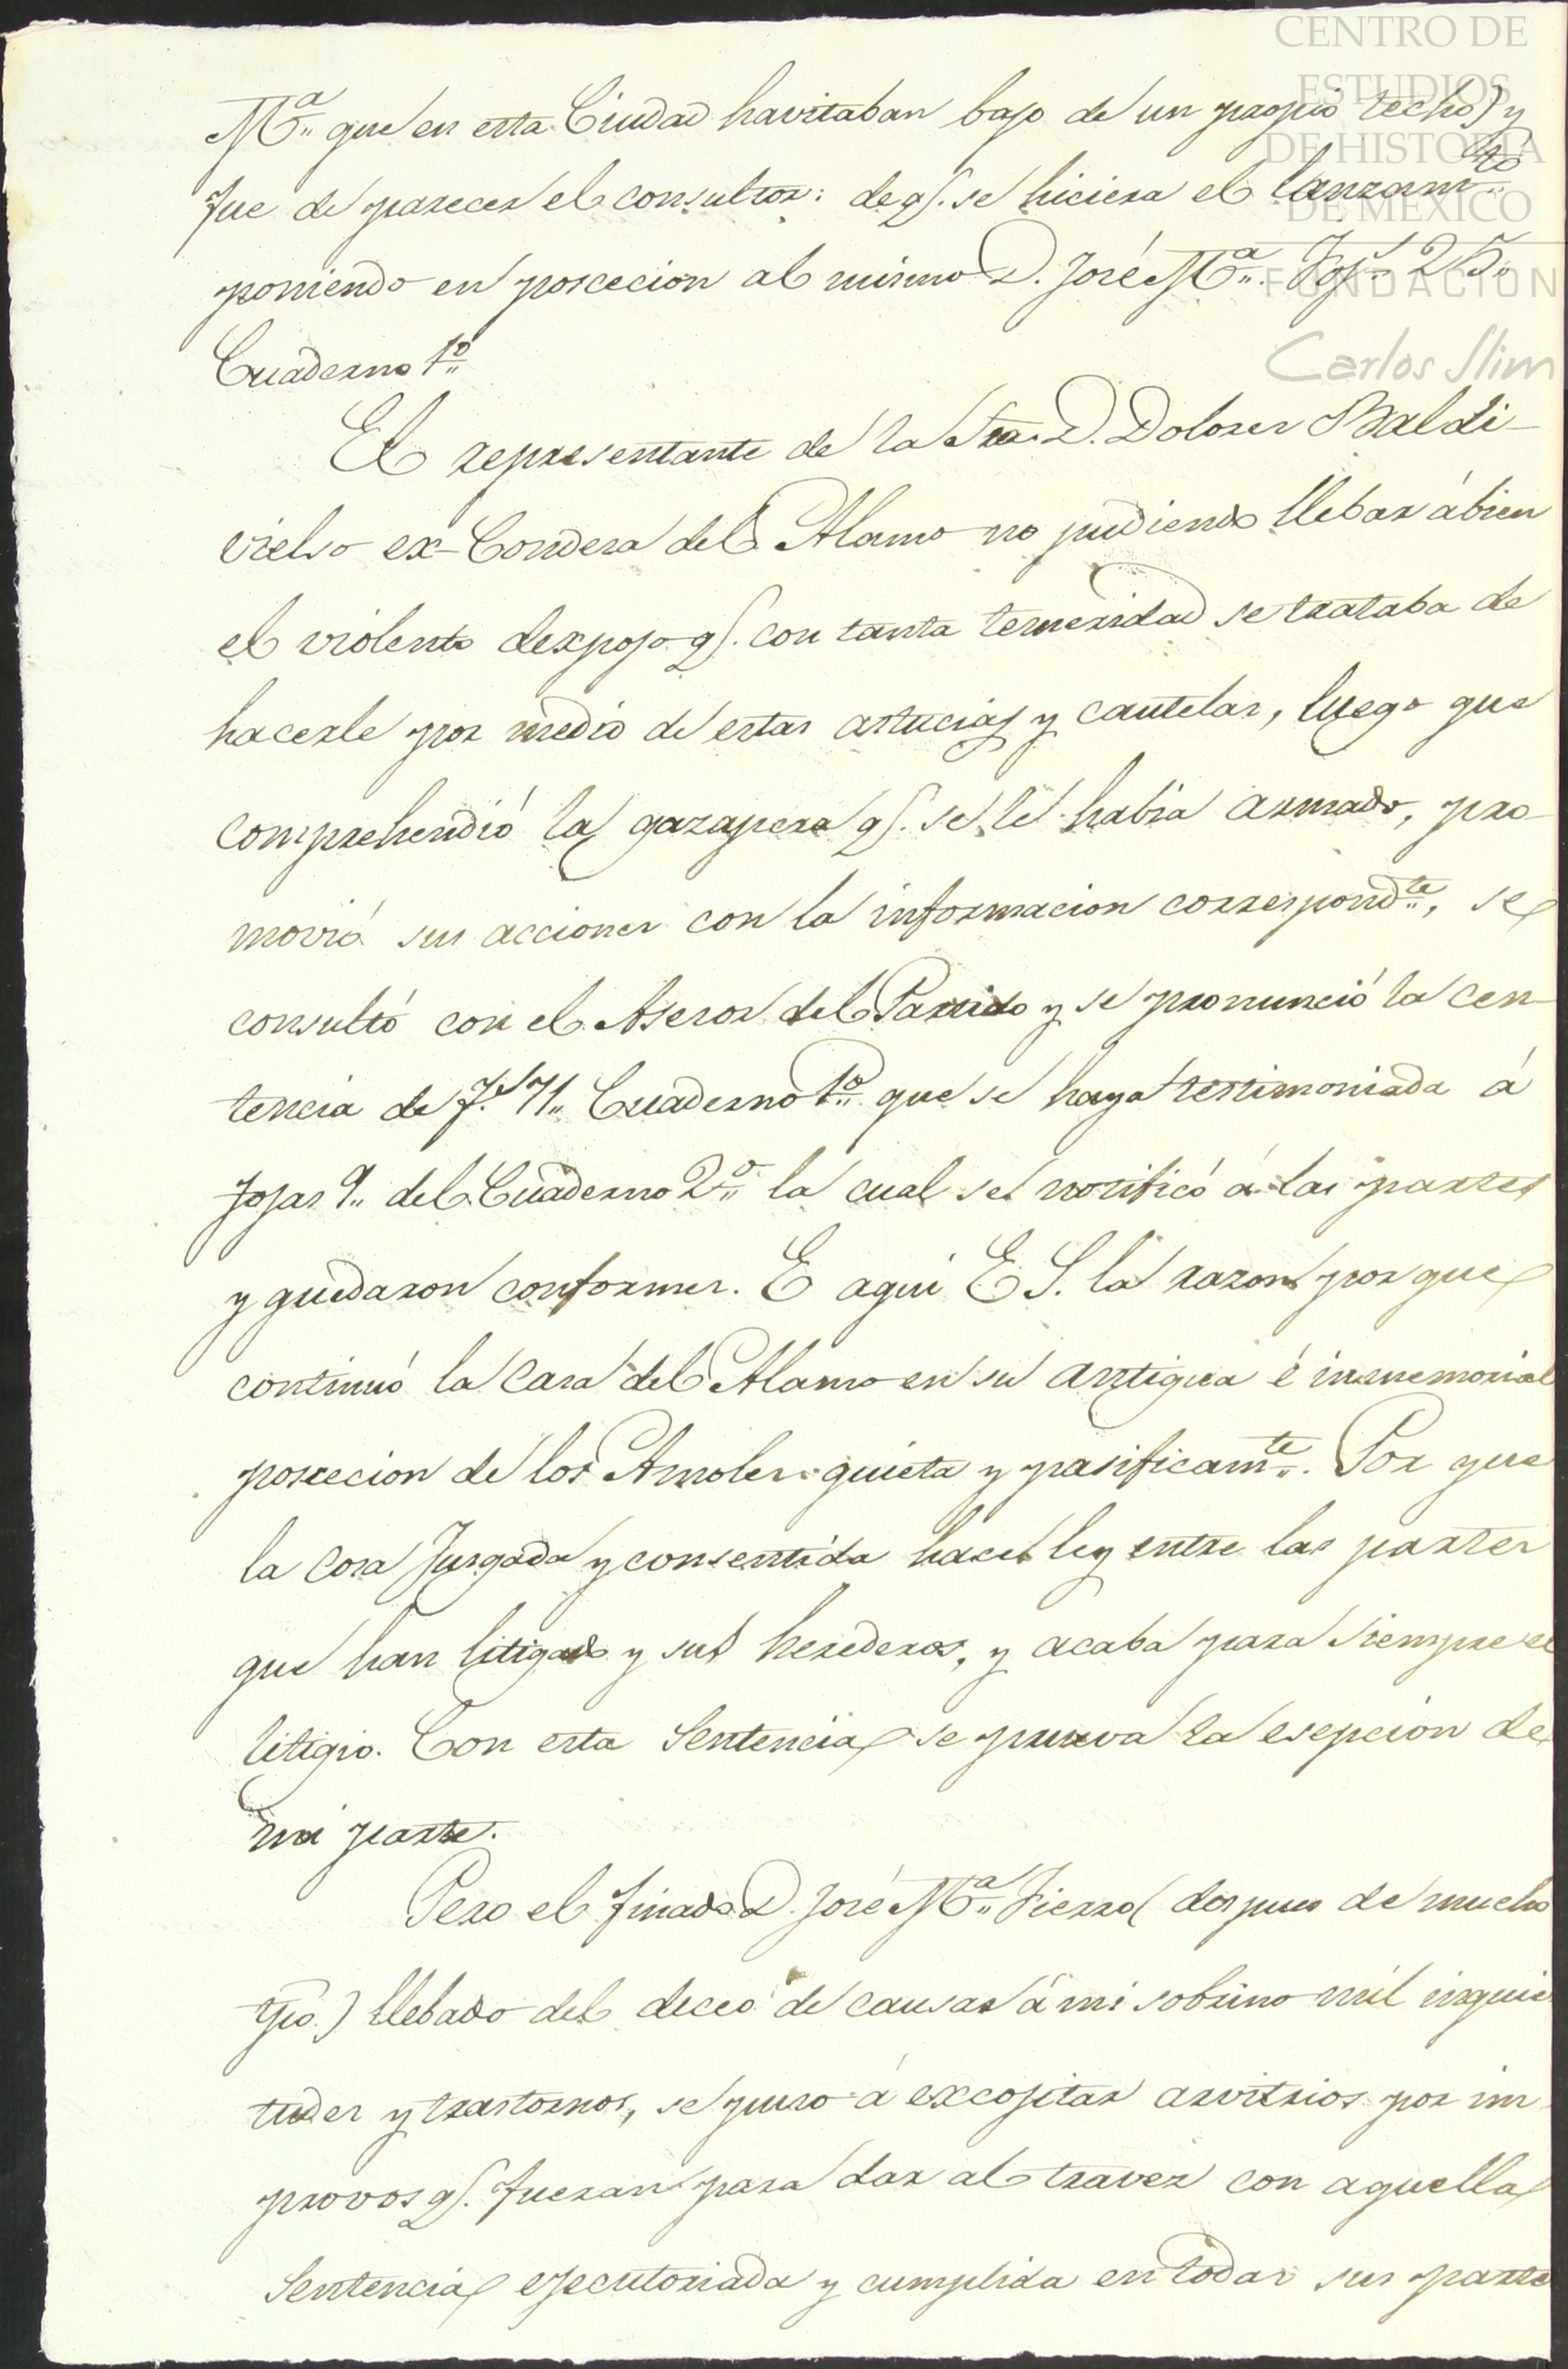 CENTRO DE
ESTUDIOS
DE HISTORIA
DE MEXICO
FUNDACION
Carlos Slim
M.ª que en esta Ciudad havitaban bajo de un propio techo) y
fue de parecer el consultor: de q.e se hiciera el lanzam.to
poniendo en poscecion al mismo D. José M.ª Foj.s 25.
Cuaderno 1.º
El representante de la Sra. D. Dolores Baldi-
vielso ex-Condesa del Alamo no pudiendo llebar á bien
el violento dexpojo q.e con tanta temeridad se trataba de
hacerle por medio de estas astucias y cautelas, luego que
comprehendió la gazapera q.e se le habia armado, pro-
movió sus acciones con la informacion correspond.te, se
consultó con el Asesor del Partido y se pronunció la cen-
tencia de f.s 71 Cuaderno 1.º que se haya testimoniada á
fojas 9 del Cuaderno 2.º la cual se notificó á las partes
y quedaron conformes. E aqui E S. la razon por que
continuó la Casa del Alamo en su antigua é inmemorial
poscecion de los Amoles quieta y pasificam.te. Por que
la Cosa Jusgada y consentida hace ley entre las partes
que han litigado y sus herederos, y acaba para siempre el
litigio. Con esta Sentencia se prueva la esepcion de
mi parte.
Pero el finado D. José M.ª Fierro (despues de mucho
tpo.) llebado del deceo de causar á mi sobrino mil inquie
tudes y trastornos, se puso á excojitar arvitrios por im
provos q.e fueran para dar al travez con aquella
Sentencia ejecutoriada y cumplida en todas sus parte